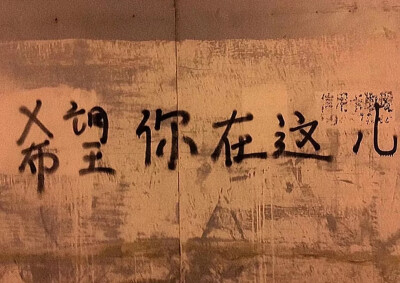 希望你在这儿